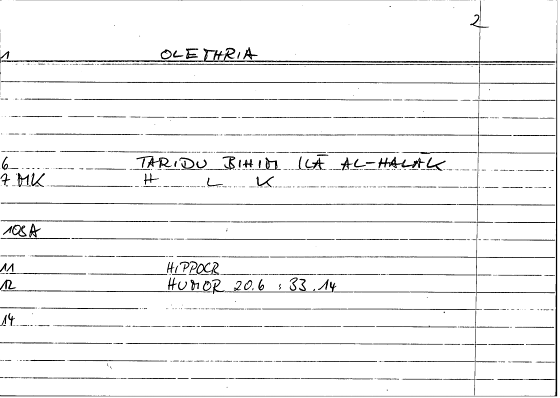 2
1 OLETHRIA
6 TARIDU BIHIM ILĀ AL-HALĀK
7 MK H L K
108A
11 HIPPOCR
12 HUMOR 20.6 : 33.14
14